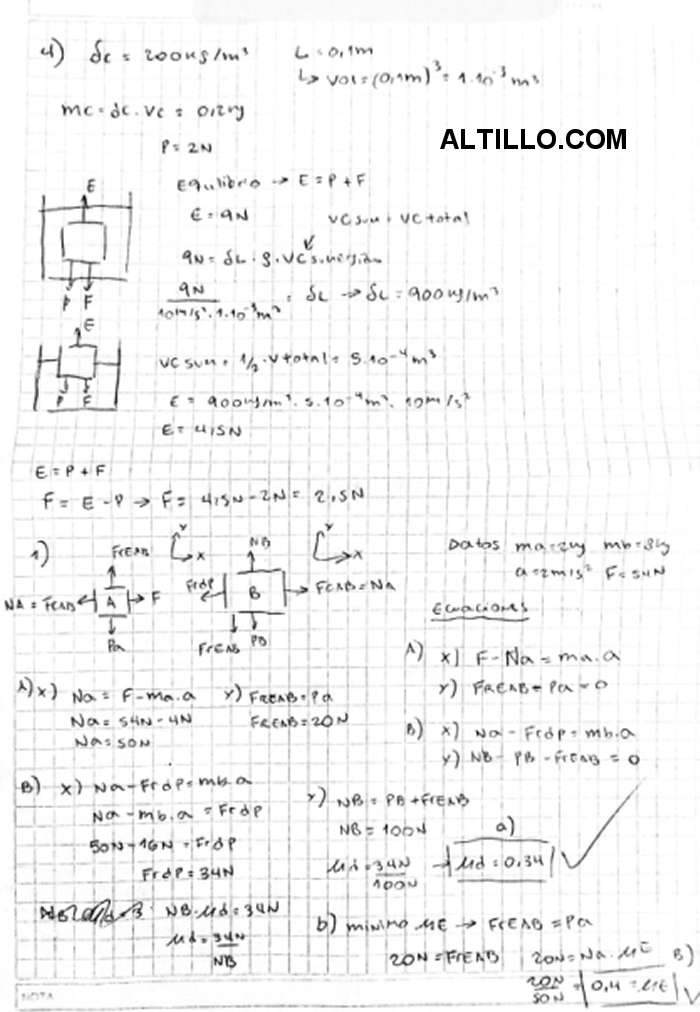 4) δc = 200kg/m³ L = 0,1m
↳ Vol = (0,1m)³ = 1.10⁻³ m³
mc = δc . Vc = 0,2kg
ALTILLO.COM
P = 2N
E
Equilibrio → E = P + F
E = 9N Vc sum = Vc total
9N = δL . g . Vc sumergido
9N / 10m/s² . 1.10⁻³ m³ = δL → δL = 900kg/m³
P F
E
Vc sum = 1/2 . V total = 5.10⁻⁴ m³
P F
E = 900kg/m³ . 5.10⁻⁴ m³ . 10m/s²
E = 4,5N
E = P + F
F = E - P → F = 4,5N - 2N = 2,5N
1) FrEAB Y X NB Y X
Datos ma=2kg mb=8kg
a=2m/s² F=54N
NA = FCAB A F Frdp B FCAB = NA
Pa FrEAB PB
Ecuaciones
A) X) F - Na = ma.a
Y) FrEAB - Pa = 0
B) X) Na - Frdp = mb.a
Y) NB - PB - FrEAB = 0
A) X) Na = F - ma.a Y) FrEAB = Pa
Na = 54N - 4N FrEAB = 20N
Na = 50N
B) X) Na - Frdp = mb.a
Na - mb.a = Frdp
50N - 16N = Frdp
Frdp = 34N
NB . μd = 34N
μd = 34N / NB
Y) NB = PB + FrEAB
NB = 100N a)
μd = 34N / 100N → μd = 0,34
b) minimo μE → FrEAB = Pa
20N = FrEAB 20N = Na . μE B)
20N / 50N = 0,4 = μE
NOTA